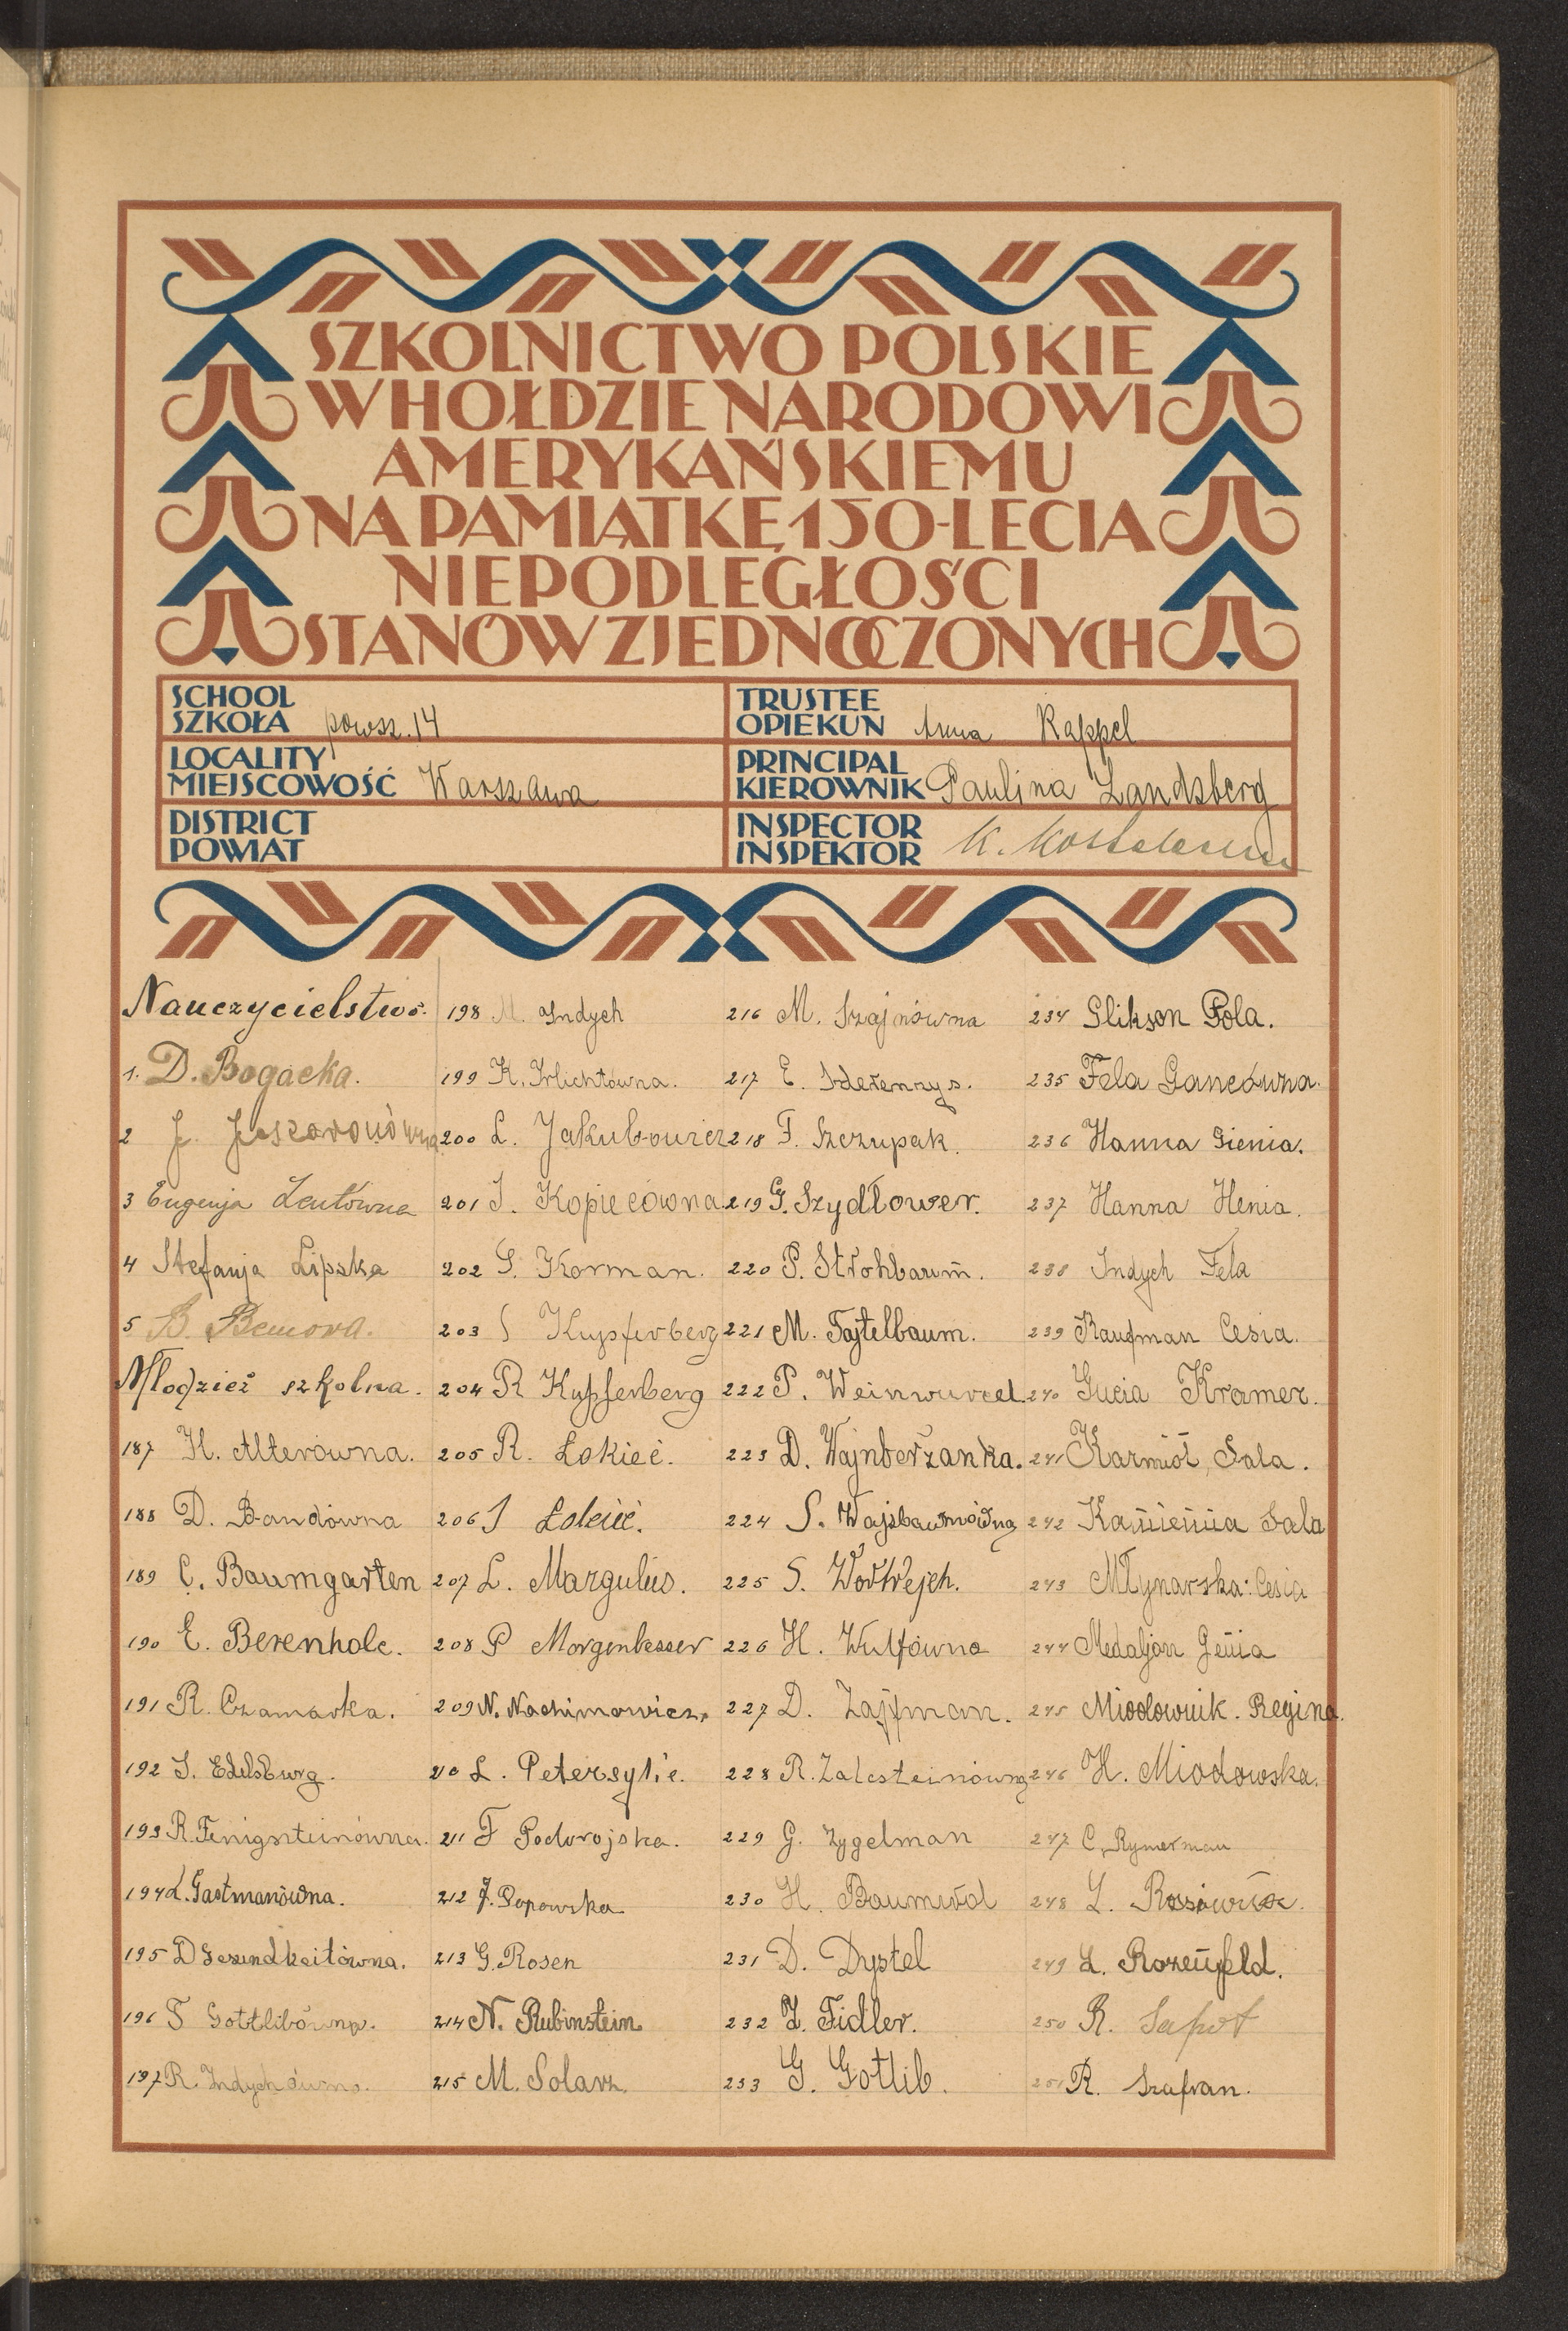 SZKOLNICTWO POLSKIE
W HOŁDZIE NARODOWI
AMERYKAŃSKIEMU
NA PAMIĄTKĘ 150-LECIA
NIEPODLEGŁOŚCI
STANÓW ZJEDNOCZONYCH
SCHOOL
SZKOŁA powsz. 14
TRUSTEE
OPIEKUN Anna Kappel
LOCALITY
MIEJSCOWOŚĆ Warszawa
PRINCIPAL
KIEROWNIK Paulina Landsberg
DISTRICT
POWIAT
INSPECTOR
INSPEKTOR K.
Nauczycielstwo.
1. D. Bogacka.
2 J.
3 Eugenja Lentówna
4 Stefanja Lipska
5 B. Bemova.
Młodzież szkolna.
187 H. Alterówna.
188 D. Bandówna
189 C. Baumgarten
190 E. Berenholc.
191 R. Czamarka.
192 S. Edelsburg.
193 R. Fenigszteinówna.
194 L. Gastmanówna.
195 D Gesundheitówna.
196 S Gottlibówna.
197 R. Indychówna.
198 M. Indych
199 K. Irlichtówna.
200 L. Jakubowicz
201 I. Kopiecówna
202 S. Korman.
203 S Kupferberg
204 R Kupferberg
205 R. Łokieć.
206 S Łokieć.
207 L. Margulies.
208 P Morgenbesser
209 N. Nachimowicz.
210 L. Petersylie.
211 F Podwojska.
212 J. Popowska
213 G. Rosen
214 N. Rubinstein
215 M. Solarz.
216 M. Szajnówna
217 E.
218 F. Szczupak.
219 G. Szydłower.
220 P. Strohbaum.
221 M. Tajtelbaum.
222 P. Weinwurcel.
223 D. Wajnberżanka.
224 S. Wajsbaumówna
225 S. Wołwejch.
226 H. Wulfówna
227 D. Zajfman.
228 R. Zalcsteinówna
229 G. Zygelman
230 H. Baumwol
231 D. Dystel
232 Z. Fidler.
233 G. Gotlib.
234 Glikson Pola.
235 Fela Gancówna.
236 Hanna Gienia.
237 Hanna Henia.
238 Indych Fela
239 Kaufman Cesia.
240 Gucia Kramer.
241 Karmioł Sala.
242 Kamienna Sala
243 Młynarska Cesia
244 Medaljon Genia
245 Miodownik. Regina.
246 H. Miodowska.
247 C. Rymerman
248 L.
249 L. Rozenfeld.
250 R. Sapot
251 R. Szafran.